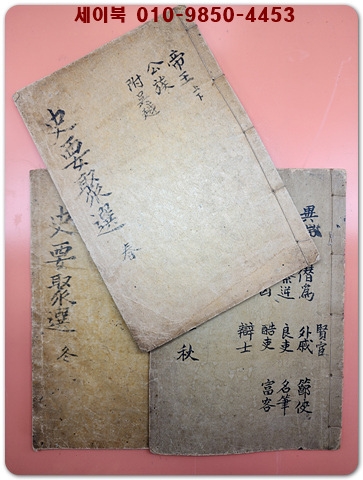 세이북 010-9850-4453
帝王上下
公族
附吳越
史要聚選
春
史要聚選
冬
異端
僭僞 外戚 節俠
賢宦
叛逆 良吏 名筆
酷吏 富客
辯士
秋